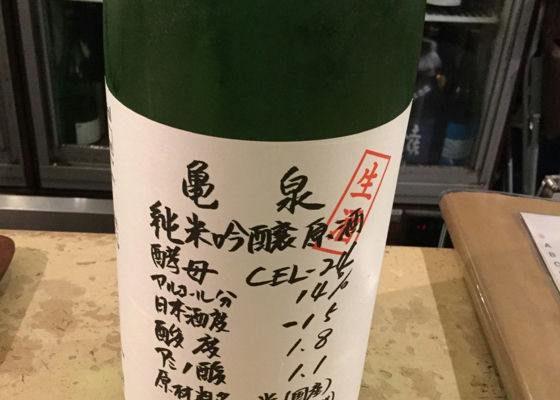 亀泉
生酒
純米吟醸原酒
酵母 CEL-24
アルコール分 14%
日本酒度 -15
酸度 1.8
アミノ酸 1.1
原材料名 米(国産)